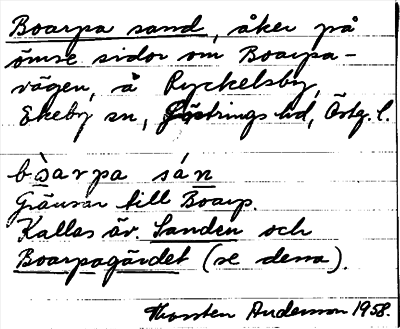 Boarpa sand, åker på
ömse sidor om Boarpa-
vägen, å Ryckelsby,
Ekeby sn, Göstrings hd, Östg. l.
bòarpa sán
Gränsar till Boarp.
Kallas äv. Sanden och
Boarpagärdet (se denna).
Thorsten Andersson 1958.